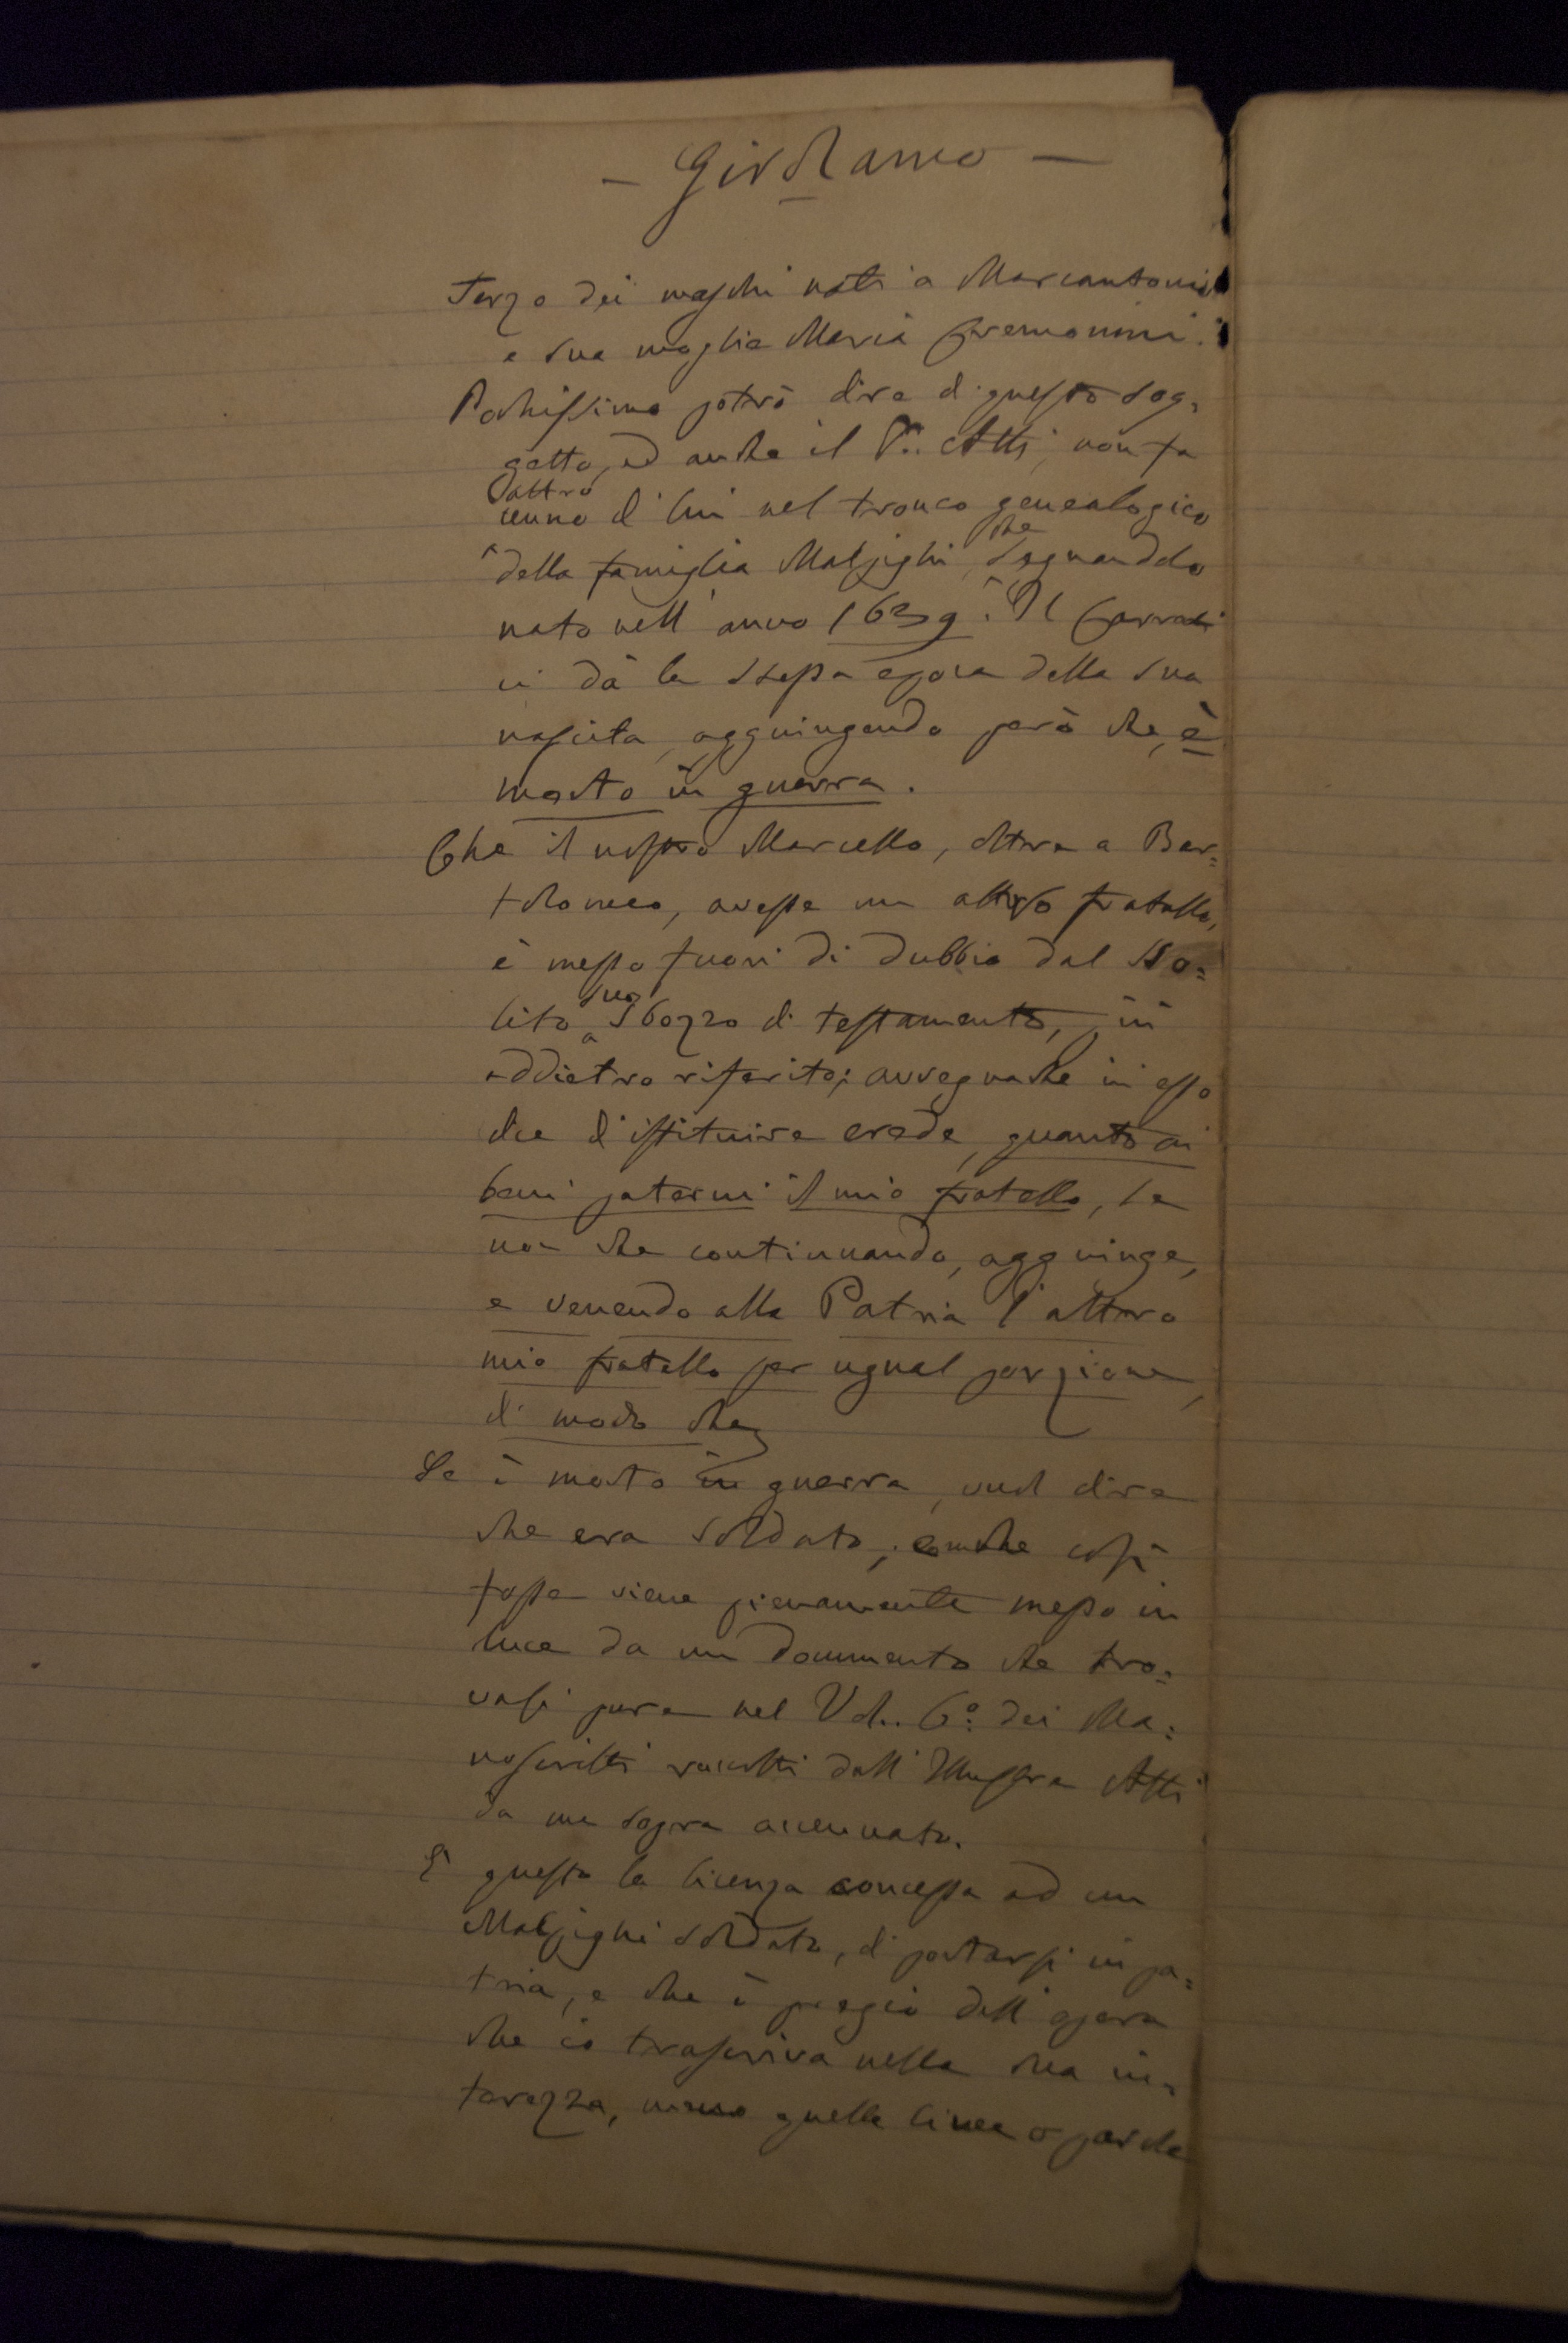 — Girolamo —
Terzo dei maschi nati a Marcantonio
e sua moglie Maria Cremonini.
Pochissimo potrò dire di questo sog-
getto, ed anche il Atti, non fa
altro
cenno di lui nel tronco genealogico
che
della famiglia Malpighi, segnandolo
nato nell'anno 1639. Il
ci dà la stessa epoca della sua
nascita, aggiungendo però che, è
morto in guerra.
Che il nostro Marcello, oltre a Bar=
tolomeo, avesse un altro fratello,
è messo fuori di dubbio dal so=
suo
lito sbozzo di testamento, in
addietro riferito; avvegnachè in esso
dice d'istituire erede, quanto ai
beni paterni il mio fratello, se
non che continuando, aggiunge,
e venendo alla Patria l'altro
mio fratello per ugual porzione,
di modo che
Se è morto in guerra, vuol dire
che era soldato; e che così
fosse viene pienamente messo in
luce da un documento che tro=
vasi pure nel Vol. 6.º dei Ma=
noscritti raccolti dall'Illustre Atti
da me sopra accennato.
È questo la licenza concessa ad un
Malpighi soldato, di portarsi in pa=
tria, e che è pregio dell'opera
che io trascriva nella sua in=
terezza, meno quelle linee o parole